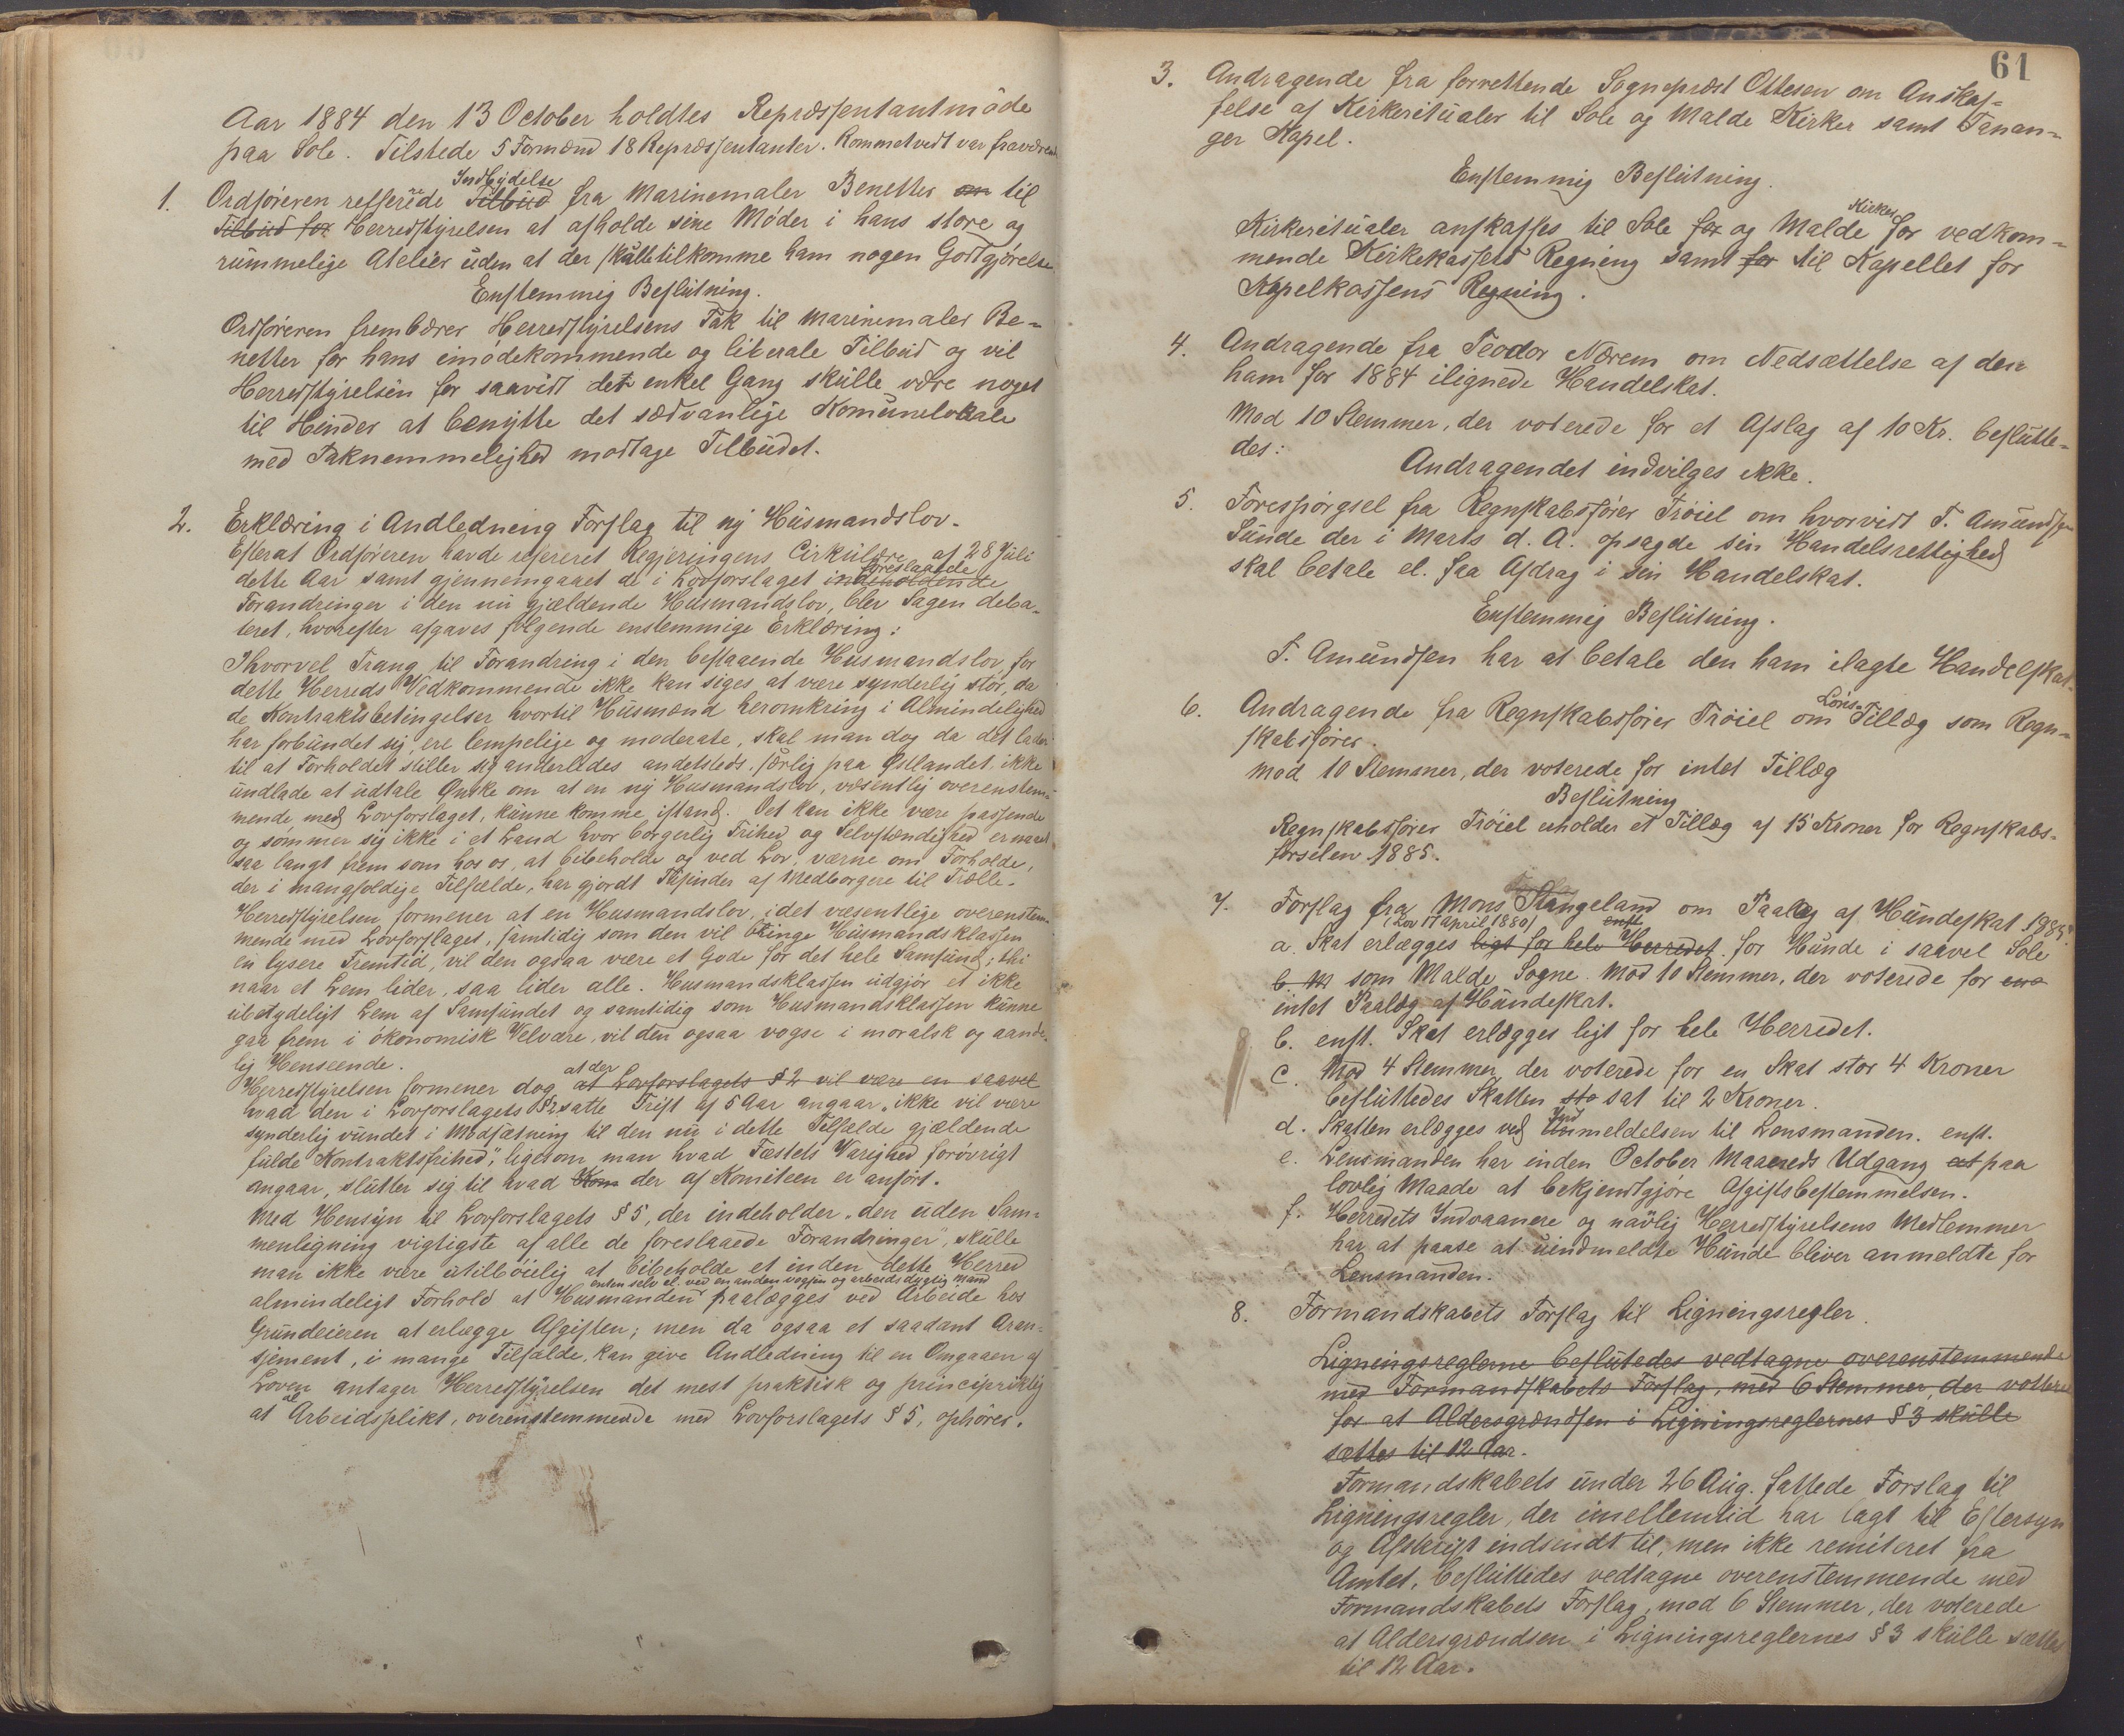 Aar 1884 den 13 October holdtes Repræsentantmöde
paa Sole. Tilstede 5 Formænd 18 Repræsentanter. Kommetvedt var fraværende
Indbydelse
1. Ordføreren refferede Tilbud fra Marinemaler Benetter om til
Tilbud for Herredstyrelsen at afholde sine Møder i hans store og
rummelige Atelier uden at der skulle tilkomme ham nogen Godtgjørelse
Enstemmig Beslutning.
Ordføreren frembærer Herredstyrelsens Tak til Marinemaler Be-
netter for hans imødekommende og liberale Tilbud og vil
Herredstyrelsen for saavidt det enkel Gang skulle være noget
til Hinder at benytte det sædvanlige Komunelokale
med Taknemmelighed modtage Tilbudet.
2. Erklæring i Andledning Forslag til ny Husmandslov.
Efterat Ordføreren havde refereret Regjeringens Cirkulære af 28 Juli
foreslaaede
dette Aar samt gjennemgaaet de i Lovforslaget indeholdende
Forandringer i den nu gjældende Husmandslov, blev Sagen deba-
teret, hvorefter afgaves følgende enstemmige Erklæring:
Ihvorvel Trang til Forandring i den bestaaende Husmandslov, for
dette Herreds Vedkommende ikke kan siges at være synderlig stor, da
de Kontraktsbetingelser hvortil Husmænd heromkring i Almindelighed
har forbundet sig, ere lempelige og moderate, skal man dog da det lader
til at Forholdet stiller sig anderledes andetsteds, særlig paa Østlandet, ikke
undlade at udtale Ønske om at en ny Husmandslov, væsentlig overenstem-
mende med Lovforslaget, kunne komme istand. Det kan ikke være passende
og sømmer sig ikke i et Land hvor borgerlig Frihed og Selvstændighed er naaed
saa langt frem som hos os, at bibeholde og ved Lov værne om Forholde,
der i mangfoldige Tilfælde, har gjordt Tusinder af Medborgere til Trælle.
Herredstyrelsen formener at en Husmandslov, i det væsentlige overenstem-
mende med Lovforslaget, samtidig som den vil bringe Husmandsklassen
en lysere Fremtid, vil den ogsaa være et Gode for det hele Samfund; thi
naar et Lem lider, saa lider alle. Husmandsklassen udgjør et ikke
ubetydeligt Lem af Samfundet og samtidig som Husmandsklassen kunne
gaa frem i økonomisk Velvære, vil den ogsaa vogse i moralsk og aande-
lig Henseende.
at der
Herredstyrelsen formener dog at Lovforslagets § 2 vil være en saavel
hvad den i Lovforslagets § 2 satte Frist af 5 Aar angaar, ikke vil være
synderlig vundet i Modsætning til den nu i dette Tilfælde gjældende
fulde "Kontraktsfrihed", ligesom man hvad Fæstets Varighed forøvrigt
angaar, slutter sig til hvad Kom der af Komiteen er anført.
Med Hensyn til Lovforslagets § 5, der indeholder "den uden Sam-
menligning vigtigste af alle de foreslaaede Forandringer", skulle
man ikke være utilbøielig at bibeholde et inden dette Herred
enten selv el. ved en anden vogsen og arbeidsdygtig Mand
almindeligt Forhold at Husmanden paalægges ved Arbeide hos
Grundeieren at erlægge Afgiften; men da ogsaa et saadant Aran-
sjement, i mange Tilfælde, kan give Andledning til en Omgaaen af
Loven antager Herredstyrelsen det mest praktisk og principrigtig
at al Arbeidsplikt, overenstemmende med Lovforslagets § 5, ophører.
61
3. Andragende fra forrettende Sogneprest Ottesen om Anskaf-
felse af Kirkeritualer til Sole og Malde Kirker samt Tanan-
ger Kapel.
Enstemmig Beslutning.
Kirker
Kirkeritualer anskaffes til Sole for og Malde for vedkom-
mende Kirkekassers Regning samt for til Kapellet for
Kapelkassens Regning.
4. Andragende fra Teodor Nærem om Nedsættelse af den
ham for 1884 ilignede Handelskat.
Mod 10 Stemmer, der voterede for et Afslag af 10 Kr. beslutte-
des:
Andragendet indvilges ikke.
5. Forespørgsel fra Regnskabsfører Trøiel om hvorvidt T. Amundsen
Sunde der i Marts d. A. opsagde sin Handelsrettighed
skal betale el. faa Afdrag i sin Handelskat.
Enstemmig Beslutning.
T. Amundsen har at betale den ham ilagte Handelskat.
6. Andragende fra Regnskabsfører Trøiel om Løns-Tillæg som Regn-
skabsfører.
Mod 10 Stemmer, der voterede for intet Tillæg
Beslutning
Regnskabsfører Trøiel erholder et Tillæg af 15 Kroner for Regnskabs-
førselen 1885.
7. Forslag fra Mons Stangeland om Paalæg af Hundeskat 1885.
(Lov 17 April 1880) enst.
a. Skat erlægges ligt for hele Herredet for Hunde i saavel Sole
b. M som Malde Sogne. Mod 10 Stemmer, der voterede for
intet Paalæg af Hundeskat.
b. enst. Skat erlægges ligt for hele Herredet.
c. Mod 4 Stemmer, der voterede for en Skat stor 4 Kroner
besluttedes Skatten sto sat til 2 Kroner.
d. Skatten erlægges ved Indmeldelsen til Lensmanden. enst.
e. Lensmanden har inden October Maaneds Udgang at paa
lovlig Maade at bekjendtgjøre Afgiftsbestemmelsen.
f. Herredets Indvaanere og navlig Herredstyrelsens Medlemmer
har at paase at uindmeldte Hunde bliver anmeldte for
Lensmanden.
8. Formandskabets Forslag til Ligningsregler.
Ligningsreglerne beslutedes vedtagne overenstemmende
med Formandskabets Forslag, med 6 Stemmer, der voterede
for at Aldersgrændsen i Ligningsreglernes § 3 skulle
sættes til 12 Aar.
Formandskabets under 26 Aug. fattede Forslag til
Ligningsregler, der imellemtid har lagt til Eftersyn
og Afskrift indsendt til, men ikke remiteret fra
Amtet, besluttedes vedtagne overenstemmende med
Formandskabets Forslag, mod 6 Stemmer, der voterede
at Aldersgrændsen i Ligningsreglernes § 3 skulle sættes
til 12 Aar.